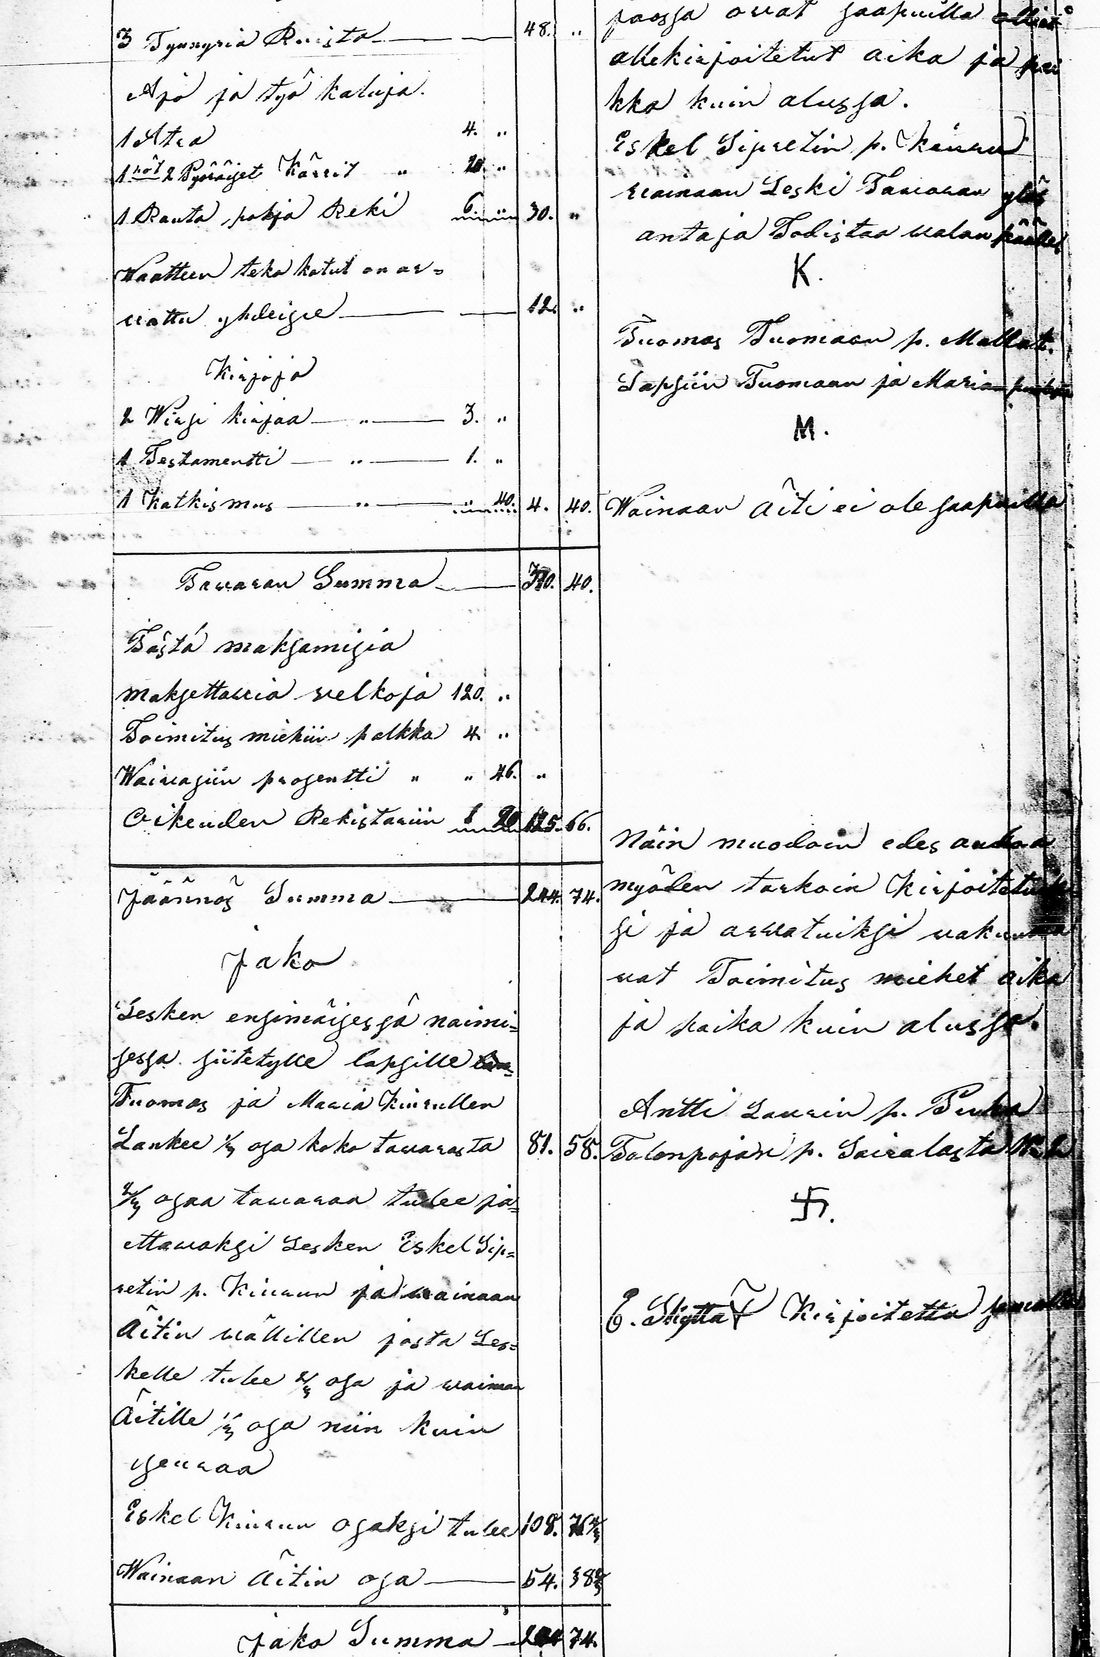 3 Tynnyriä Ruista 48. "
Ajo ja työ kaluja.
1 Atra 4. "
1 nöt 2 Pyöräiset Kärrit " 20. "
1 Rauta pohja Reki 6. " 30. "
Waatteen teko katut on ar=
wattu yhdeisse 12. "
Kirjoja
2 Wirsi kirjaa " 3. "
1 Testamentti " 1. "
1 Katkismus " " 40. 4. 40.
Tawaran Summa 40.
Tästä maksamisia
maksettawia welkoja 120. "
Toimitus miehiin palkka 4. "
Waiwasiin prosentti " " 46. "
Oikeuden Rekistariin 1 20 125. 66.
Jäännös Summa 244. 74.
Jako
Lesken ensimäisessä naimi=
sessa siitetylle lapsille
Tuomas ja Maria Kiurullen
Lankee 1/3 osa koko tawarasta 81. 58.
2/3 osaa tawaraa tulee ja=
ettawaksi Lesken Eskel Sip=
retin p. Kiurun ja wainaan
Äitin wälillen josta Les=
kelle tulee 2/3 osa ja wainaan
Äitille 1/3 osa niin kuin
seuraa
Eskel Kiurun osaksi tulee 108. 76 2/3
Wainaan Äitin osa 54. 38 2/3
Jako Summa 244 74.
jaossa owat saapuilla olleet
allekirjoitetut aika ja pai
kka kuin alussa.
Eskel Sipretin p. Kiuru
wainaan Leski Tawaran ylös
antaja Todistaa walan päälle
K.
Tuomas Tuomaan p. Mallat.
Lapsiin Tuomaan ja Marian puolesta
M.
Wainaan Äiti ei ole saapuilla
Näin muodoin edes andoa
myöden tarkoin Kirjoitetuik
si ja arwatuiksi wakuutta
wat Toimitus miehet aika
ja paika kuin alussa.
Antti Laurin p. Pukea
Talonpojan p. Sairalasta No 2
卐.
E. Kirjoitettu samalla